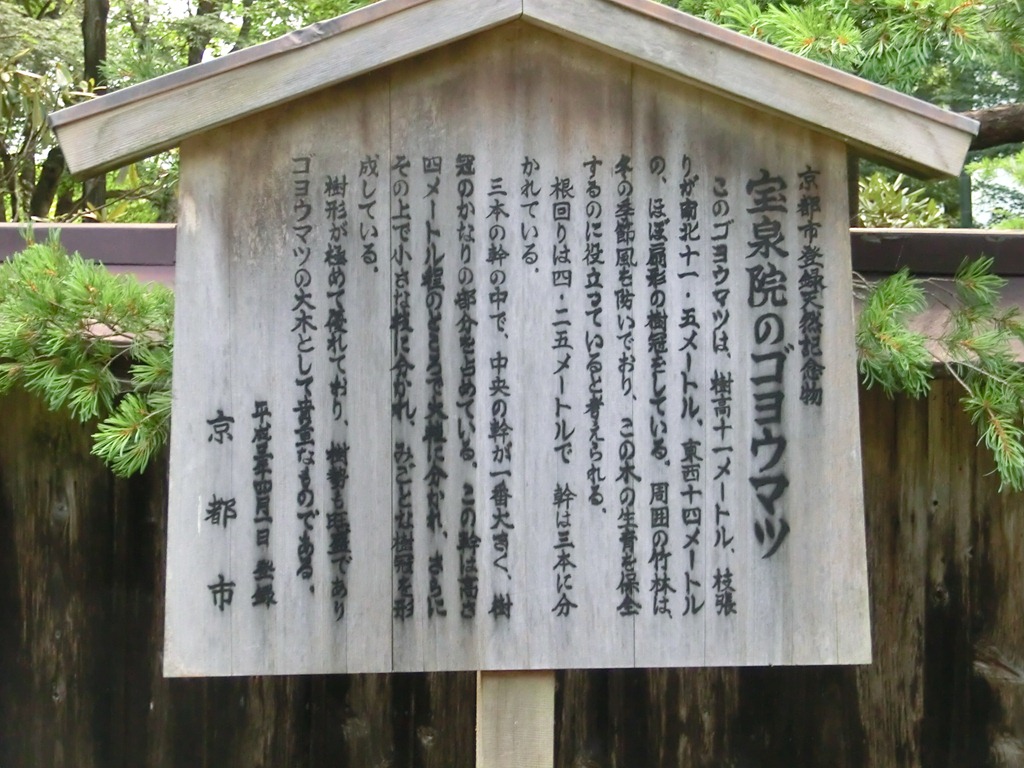 京都市登録天然記念物
宝泉院のゴヨウマツ
このゴヨウマツは、樹高十一メートル、枝張
りが南北十一・五メートル、東西十四メートル
の、ほぼ扇形の樹冠をしている。周囲の竹林は、
冬の季節風を防いでおり、この木の生育を保全
するのに役立っていると考えられる。
根回りは四・二五メートルで　幹は三本に分
かれている。
三本の幹の中で、中央の幹が一番大きく、樹
冠のかなりの部分を占めている。この幹は高さ
四メートル程のところで大枝に分かれ、さらに
その上で小さな枝に分かれ、みごとな樹冠を形
成している。
樹形が極めて優れており、樹勢も旺盛であり
ゴヨウマツの大木として貴重なものである。
平成五年四月一日　登録
京都市